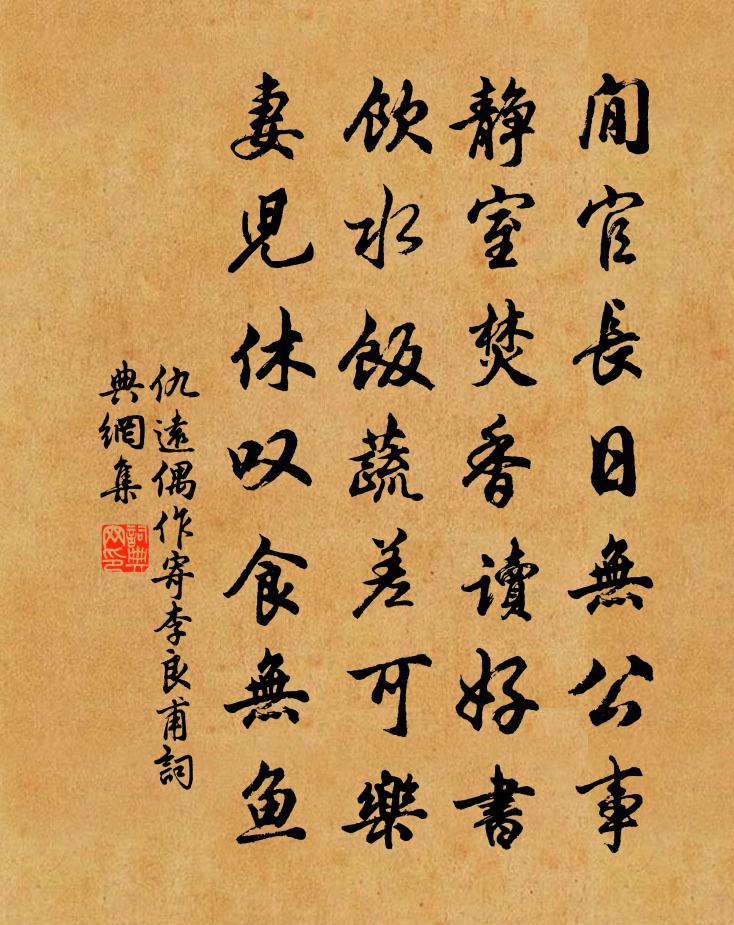 閒官長日無公事
静室焚香讀好書
飲水飯蔬差可樂
妻児休叹食無鱼
仇遠偶作寄李良甫詞
典網集
詞典网印